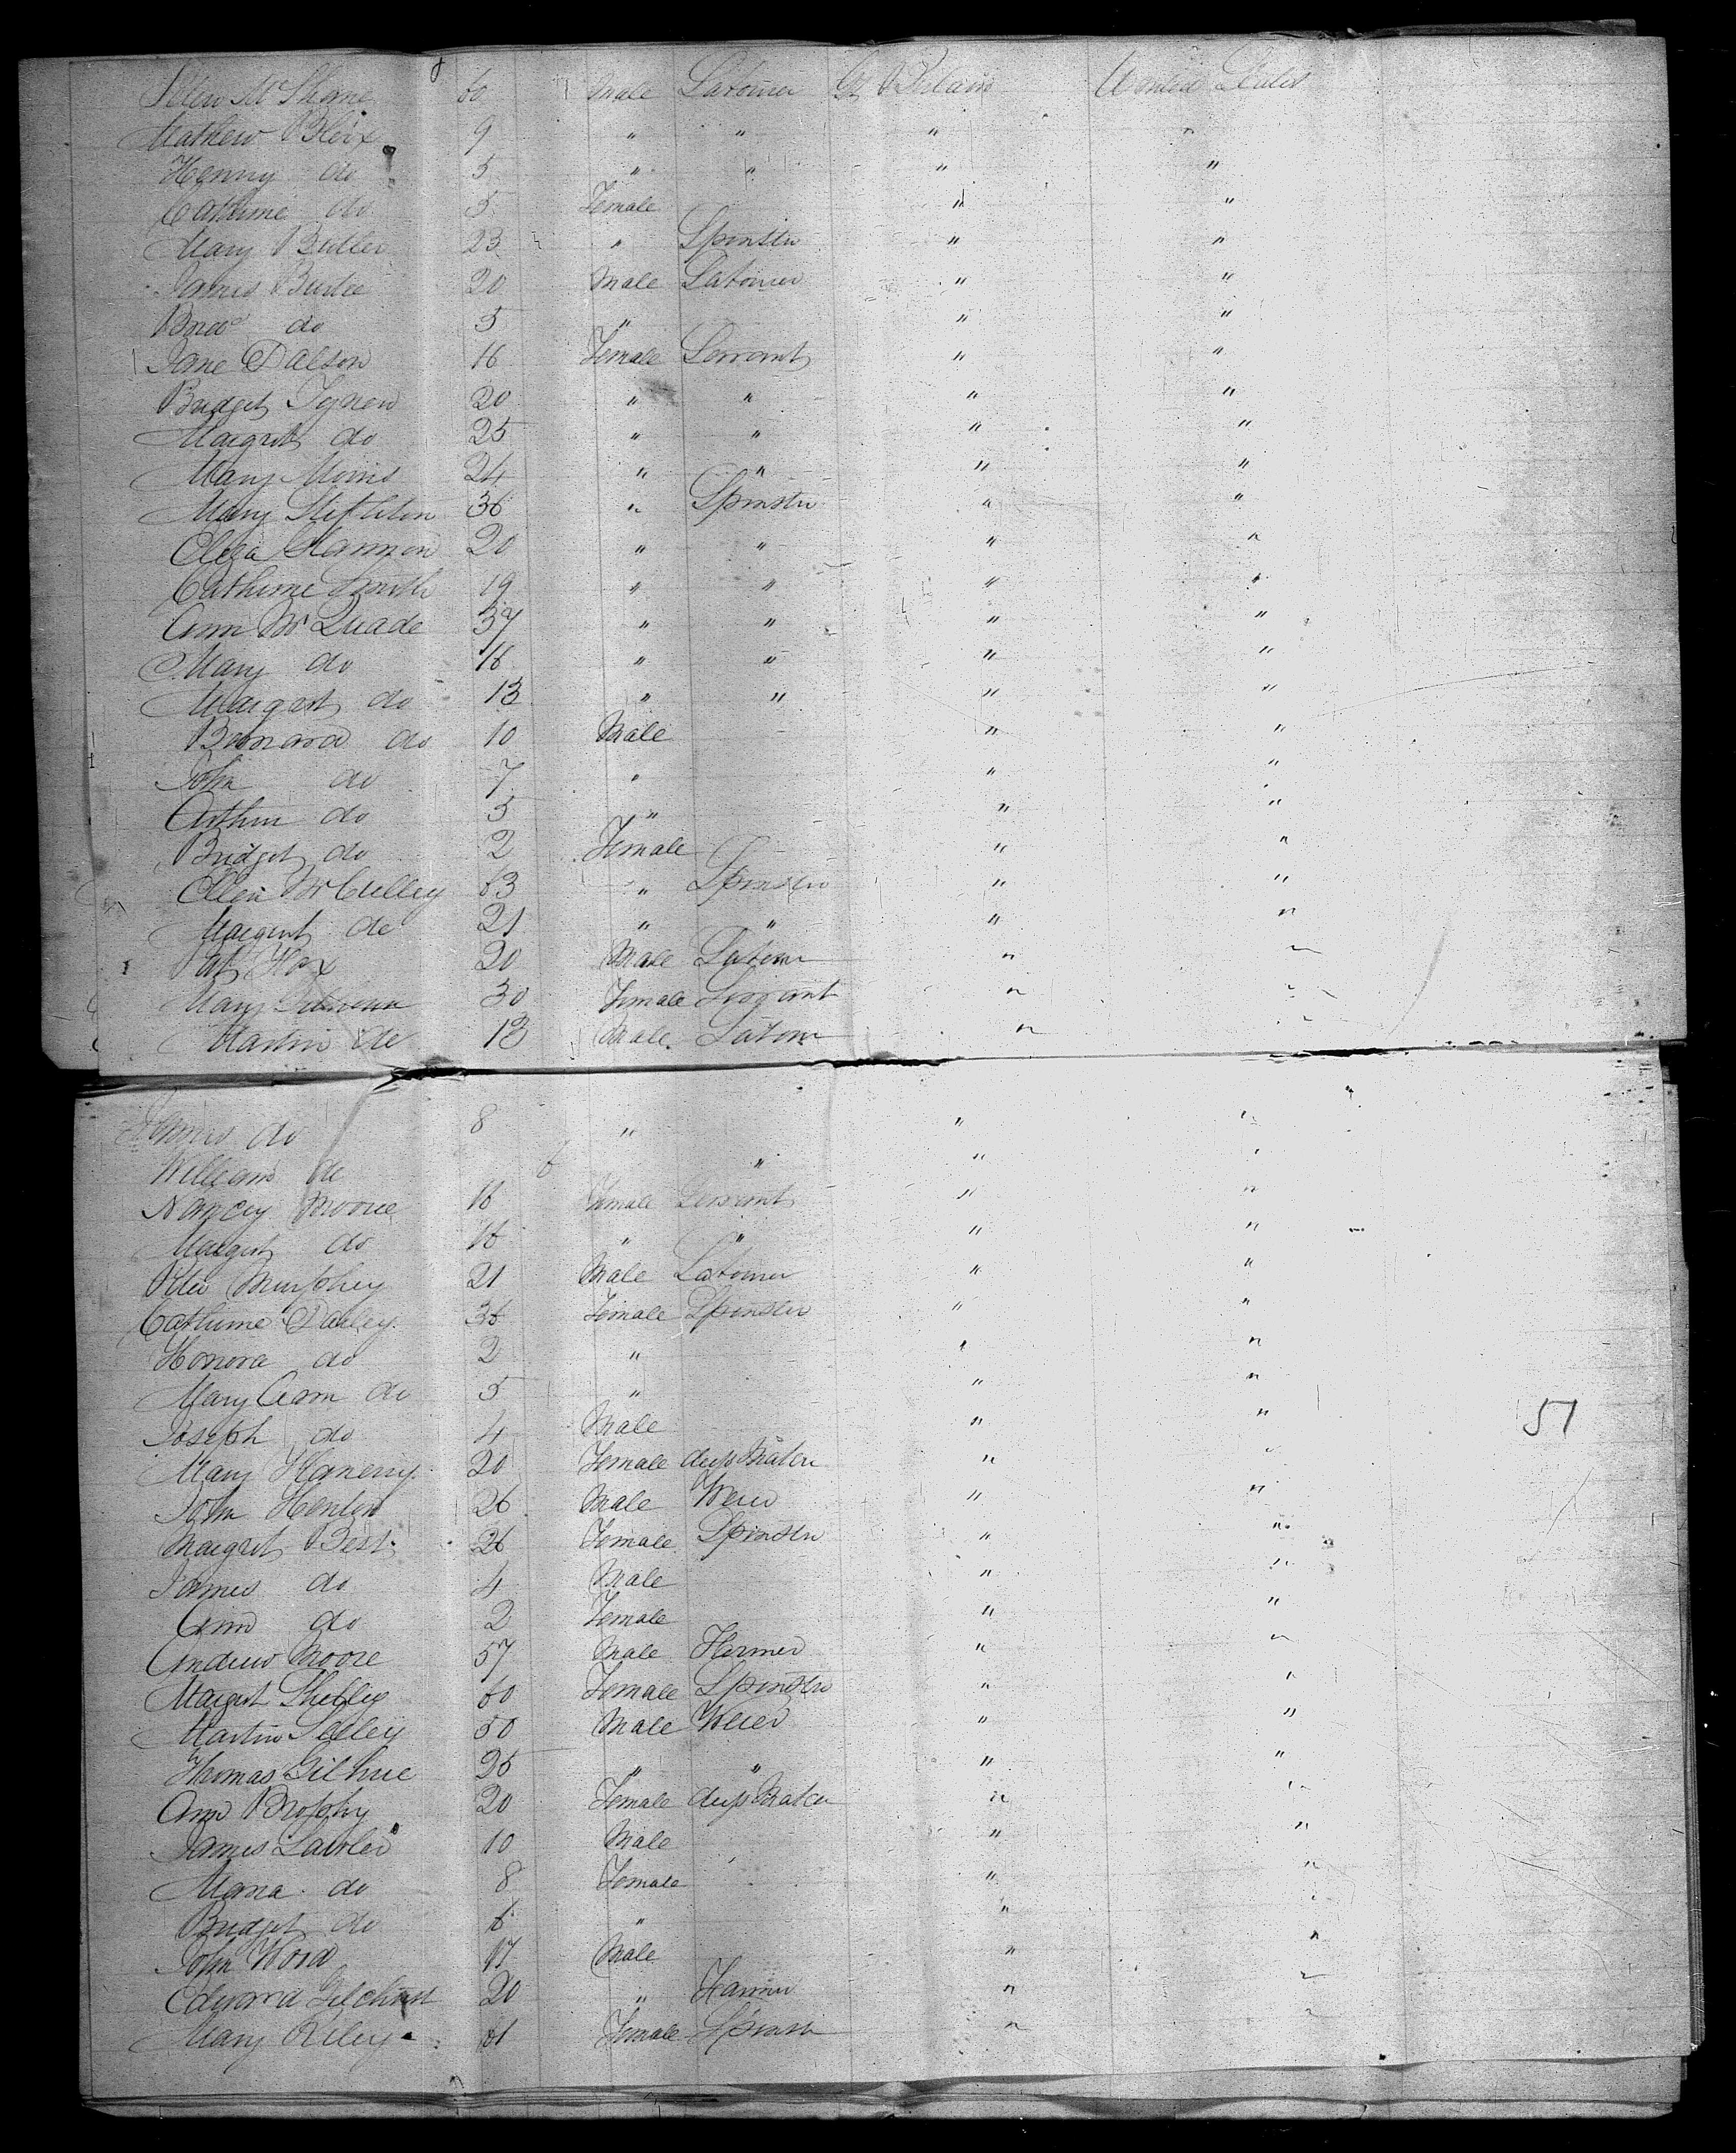 Mc Shane 60 Male Labourer Gt Britain United States
Mathew 9 " " " "
Henry do 5 " " " "
Catherine do 5 Female " "
Mary Butler 23 " Spinster " "
James Burke 20 Male Labourer " "
do 5 " " "
Jane Dalson 16 Female Servant " "
Bridget 20 " " " "
Margret do 25 " " " "
Mary Morris 24 " " " "
Mary Stepleton 36 " Spinster " "
Eliza Hannon 20 " " " "
Catherine Smith 19 " " " "
Ann McQuade 37 " " " "
Mary do 16 " " " "
Margret do 13 " " " "
Bernard do 10 Male " "
John do 7 " " "
Arthur do 5 " " "
Bridget do 2 Female " "
Ellen McCulley 63 " Spinster " "
Margret do 21 " " " "
Pat 20 Male Labour " "
Mary 30 Female Servant " "
Martin do 13 Male Labour " "
James do 8 " " "
William do 6 " " "
Nancy Moore 18 Female Servant " "
Margret do 16 " " " "
Peter Murphey 21 Male Labourer " "
Catherine Dailey 36 Female Spinster " "
Honora do 2 " " "
Mary Ann do 5 " " "
Joseph do 4 Male " " 51
Mary 20 Female dress Maker " "
John Henton 26 Male " "
Margret Best 26 Female Spinster " "
James do 4 Male " "
Ann do 2 Female " "
Andrew Moore 57 Male Farmer " "
Margret 60 Female Spinster " "
Martin 50 Male " "
Thomas 25 " " " "
Ann Brophy 20 Female dress Maker " "
James Lawler 10 Male " "
Maria do 8 Female " "
Bridget do 6 " " "
John Word 17 Male " "
Edward Gilchrist 20 " Farmer " "
Mary Riley 61 Female Spinster " "